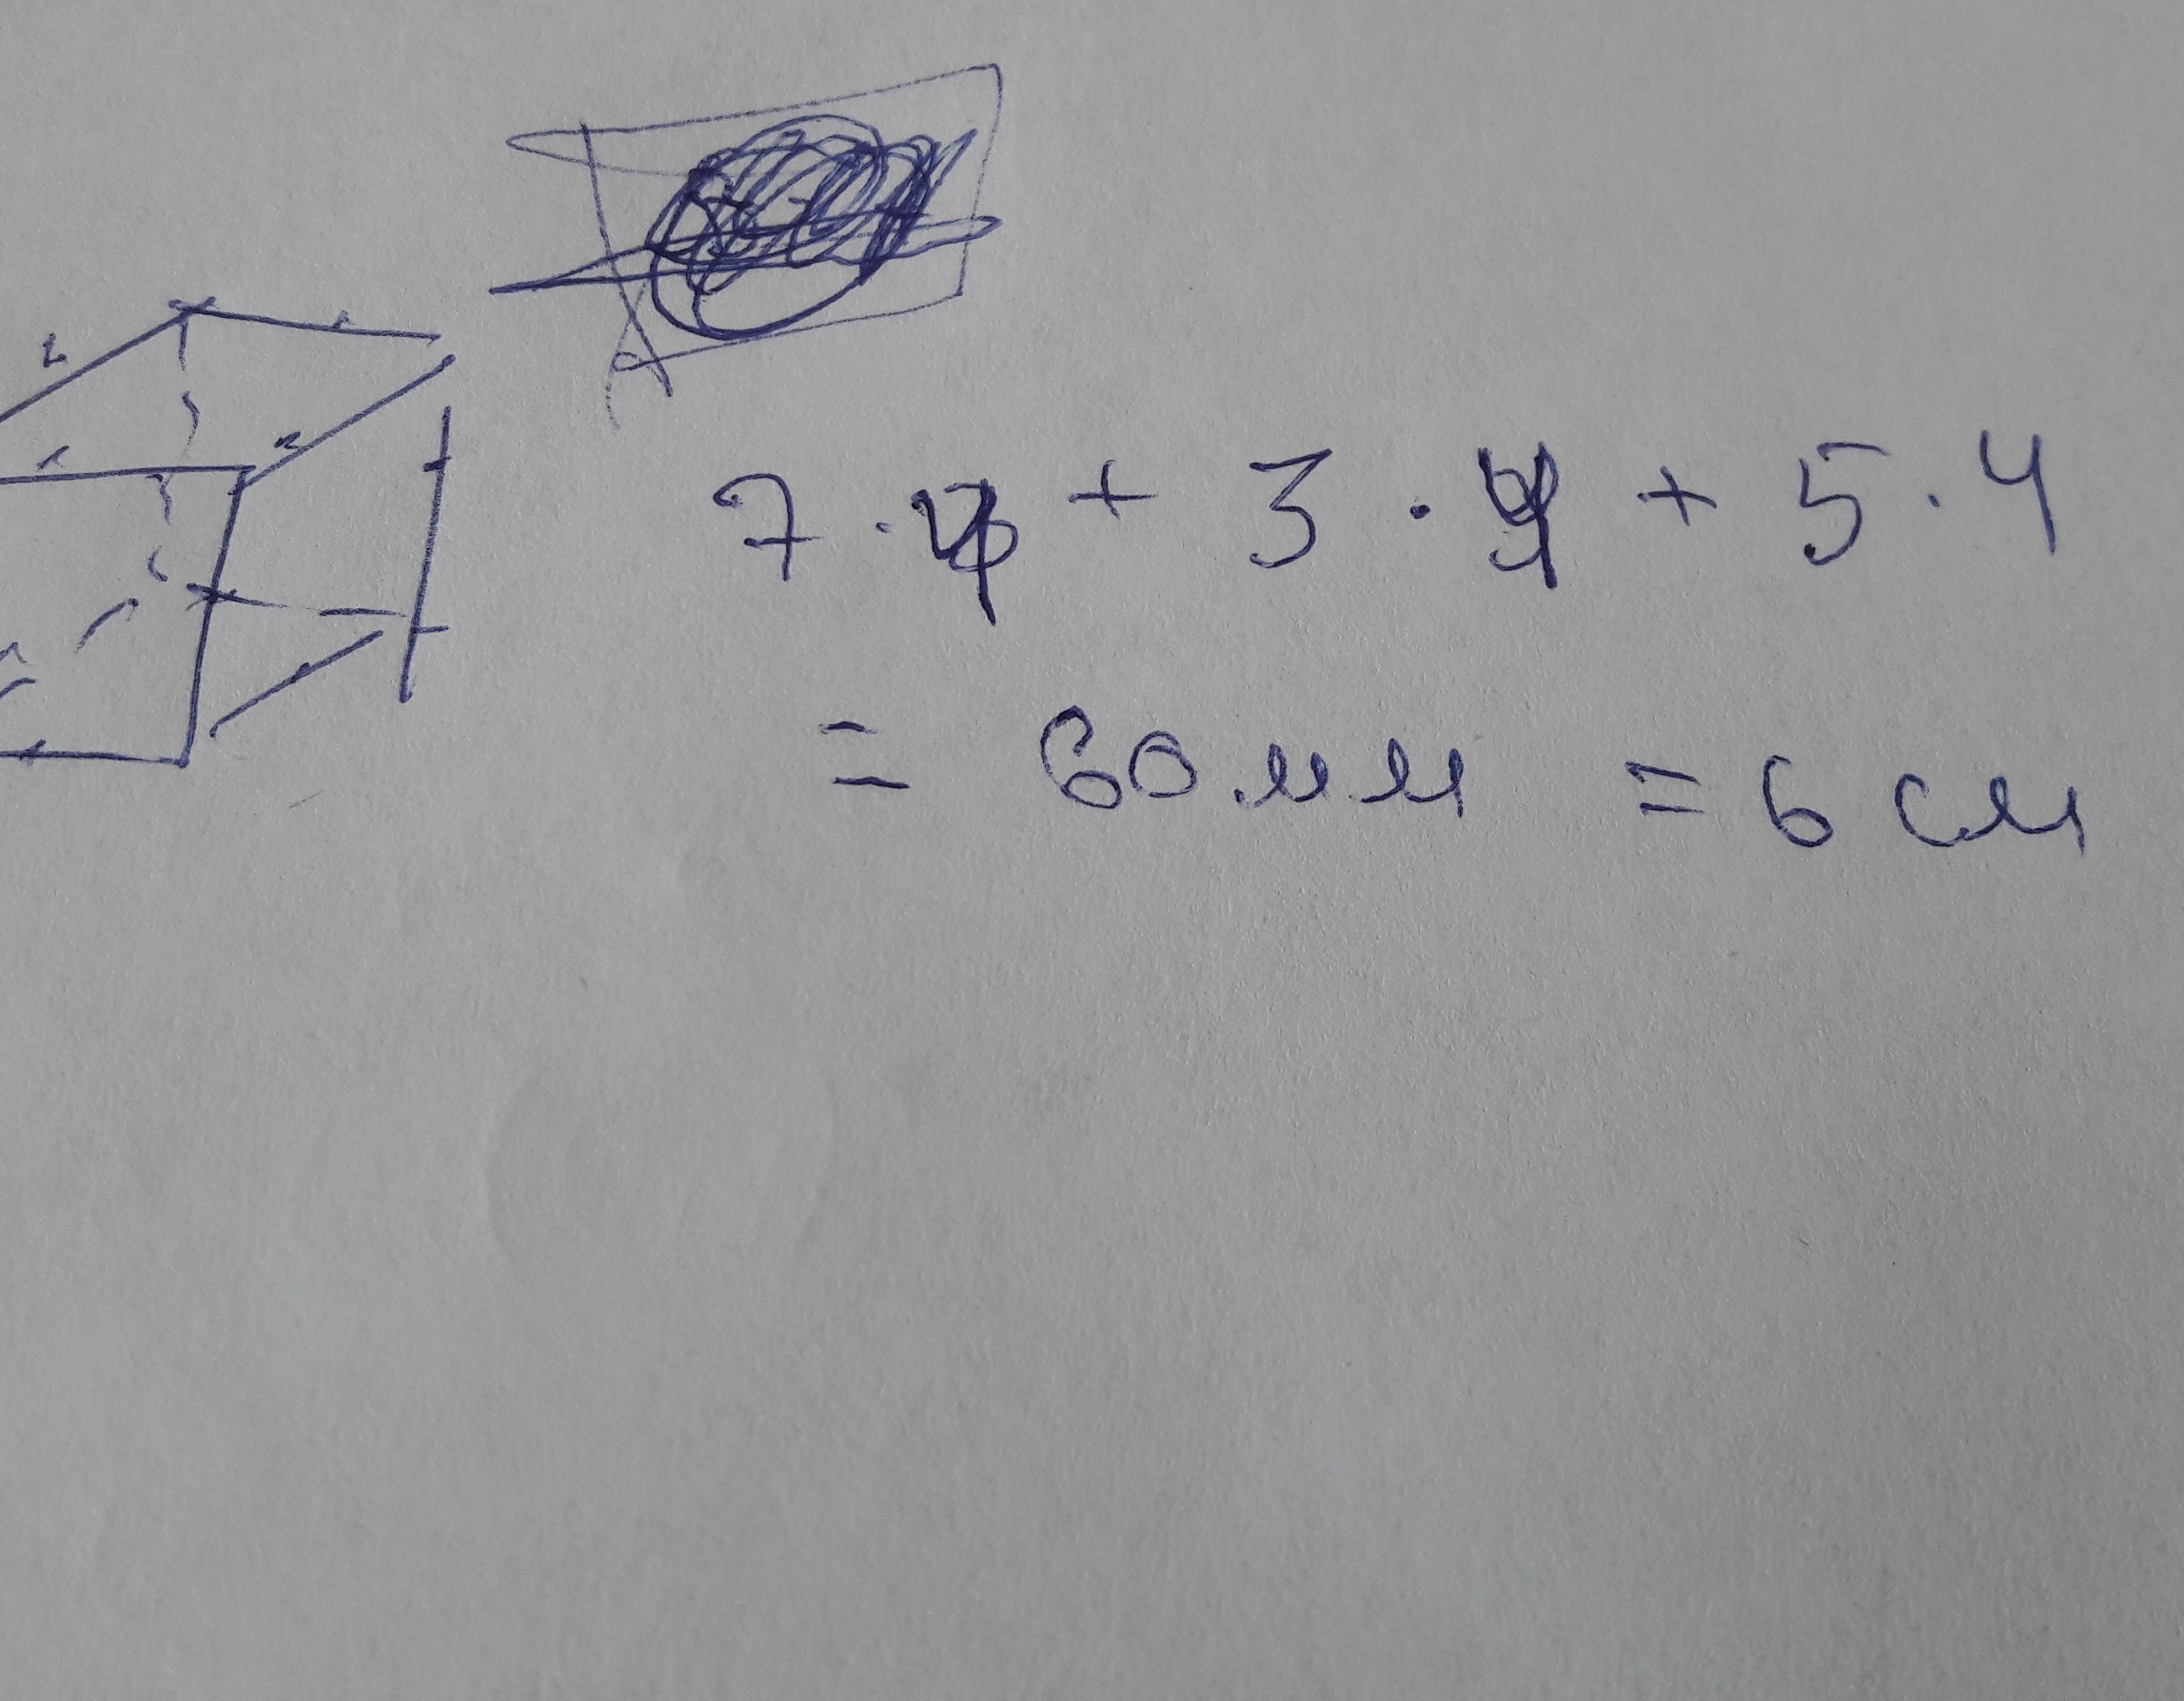 7 · 4 + 3 · 4 + 5 · 4
= 60 мм = 6 см